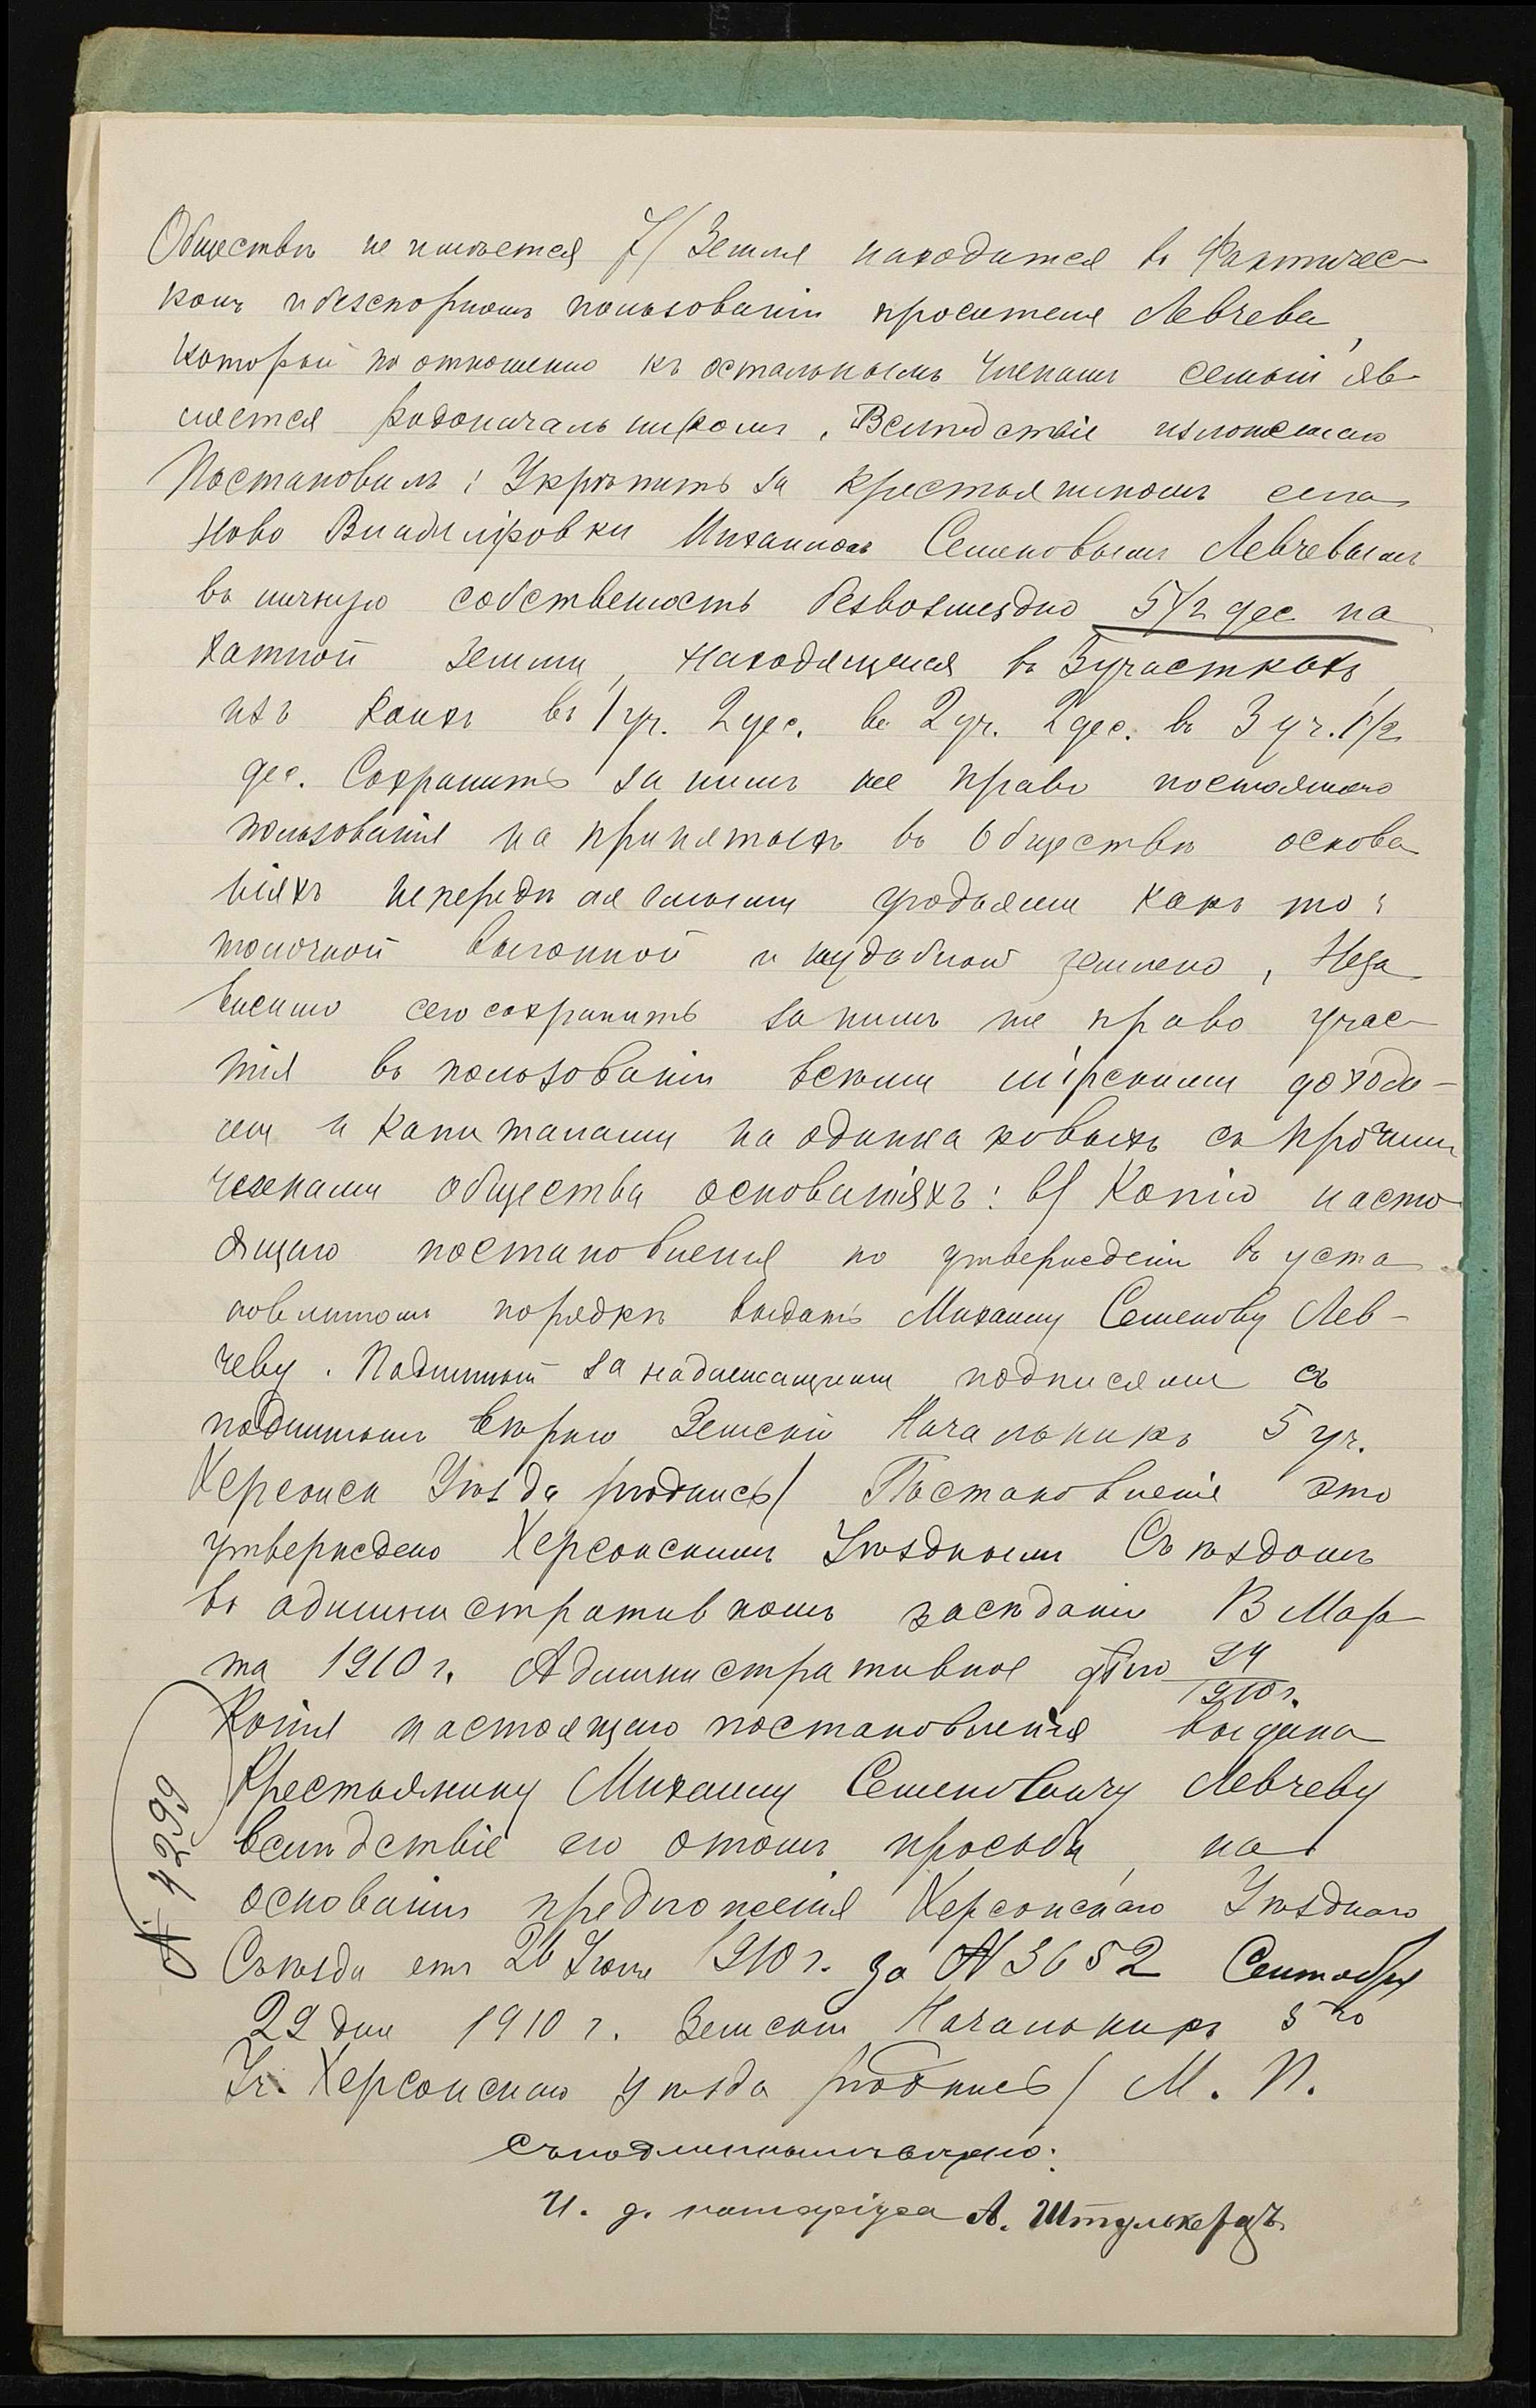 Обществѣ не имѣется 7/ Земля находится въ Фактичес-
комъ и безспорномъ пользованіи просителя Левчева,
который по отношенію къ остальнымъ членамъ семьи яв-
ляется родоначальникомъ. Вслѣдствіе изложеннаго
Постановилъ: Укрѣпить за крестьяниномъ села
Ново Владиміровки Михаиломъ Семеновымъ Левчевымъ
въ личную собственность безвозмездно 5 1/2 дес. па
хатной земли, находящейся въ 3 участкахъ,
изъ коихъ въ 1 уч. 2 дес. во 2 уч. 2 дес. въ 3 уч. 1 1/2
дес. Сохранить за нимъ же право постояннаго
пользованія на принятыхъ въ Обществѣ основа
ніяхъ непередѣляемыми угодьями какъ то:
толочной выгонной и неудобной землею, Неза
висимо сего сохранить за нимъ же право учас-
тія въ пользованіи всѣми мірскими дохода-
ми и капиталами на одинаковыхъ съ прочими
членами общества основаніяхъ: в) Копію насто
ящаго постановленія по утвержденіи въ уста
новленномъ порядкѣ выдать Михаилу Семенову Лев-
чеву. Подлинный за надлежащими подписями съ
подлиннымъ вѣрно Земскій Начальникъ 5 уч.
Херсонск Уѣзда /подпись/ Постановленіе это
утверждено Херсонскимъ Уѣзднымъ Съѣздомъ
въ административномъ засѣданіи 13 Мар
та 1910 г. Административное дѣло 24
1910 г.
Копія настоящаго постановленія выдана
Крестьянину Михаилу Семеновичу Левчеву
вслѣдствіе его о томъ просьбы, на
основаніи предложенія Херсонскаго Уѣзднаго
Съѣзда отъ 26 Іюля 1910 г. за № 3652 Сентября
29 дня 1910 г. Земскій Начальникъ 5го
Уч. Херсонскаго уѣзда /подпись/ М. П.
№ 4299
Съ подлиннымъ вѣрно:
И. д. нотаріуса А. Штулькерцъ